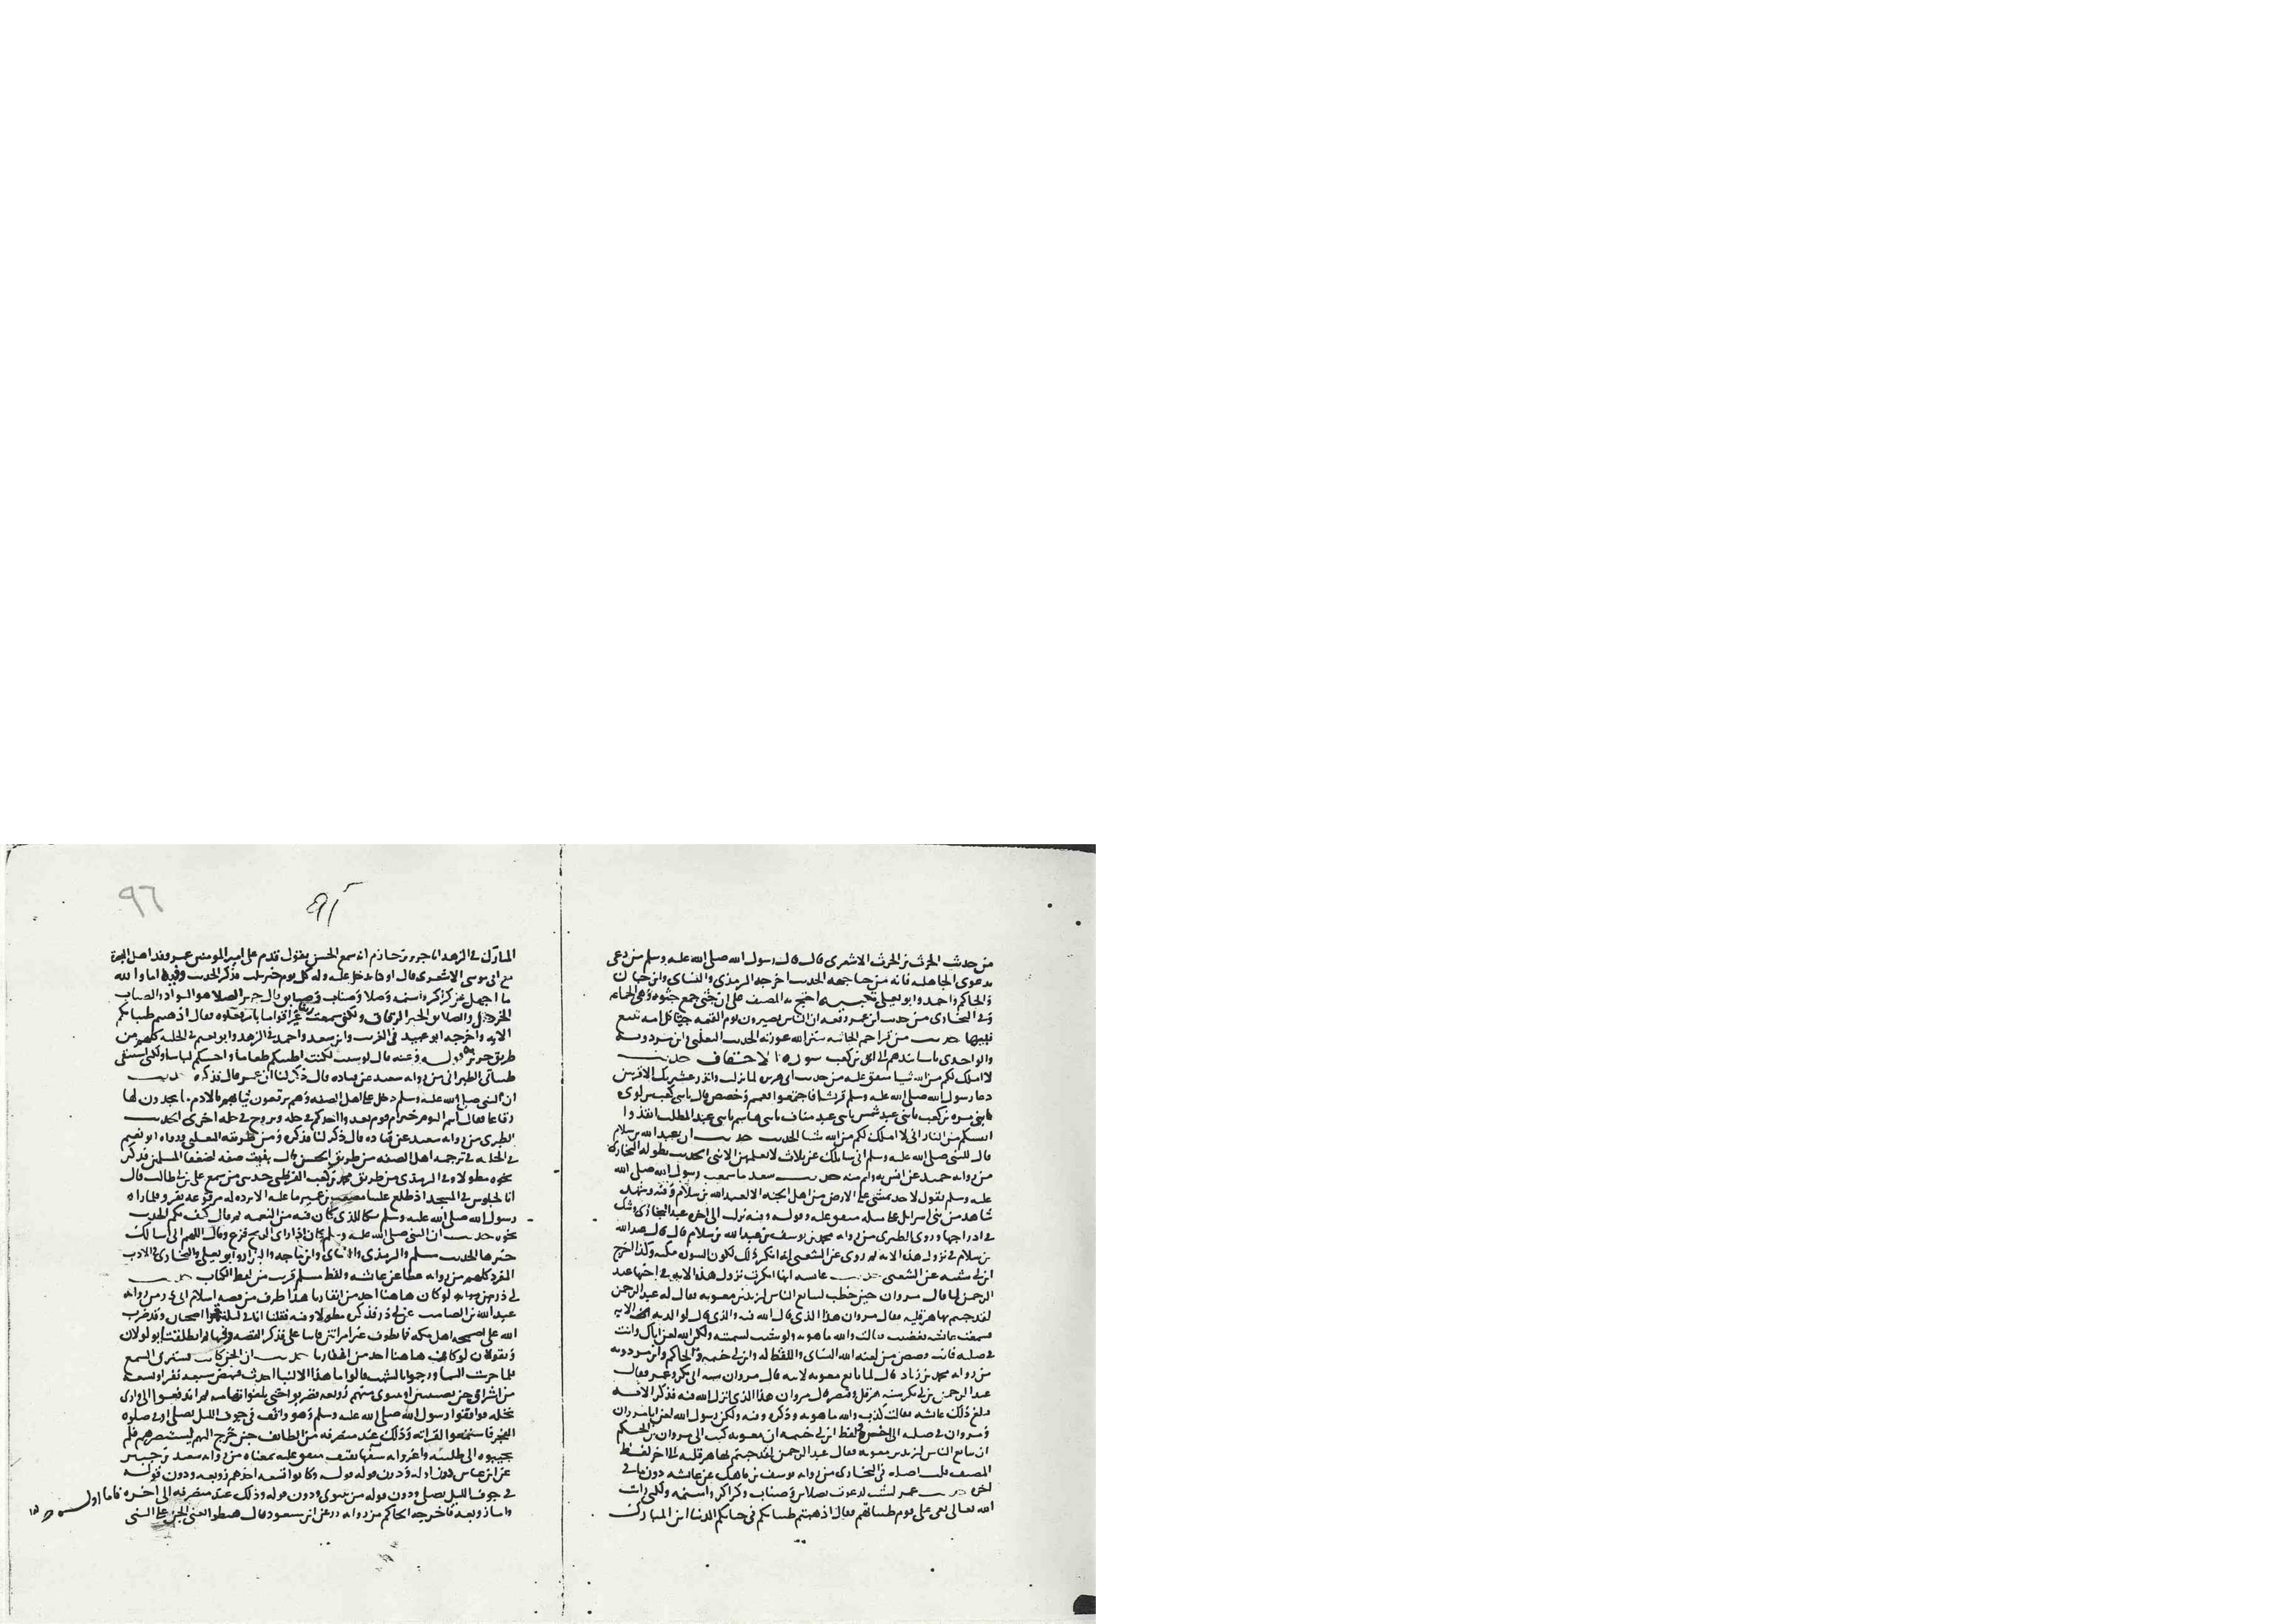 من حديث الحرث بن الحرث الاشعري قال قال رسول الله صلى الله عليه وسلم من دعى
بدعوى الجاهلية فانه من جثا جهنم الحديث اخرجه الترمذي والنساي وابن حبان
والحاكم واحمد وابو يعلى تنبيه احتج به المصنف على ان جثى جمع جثوه وهي الجماعه
وفي البخاري من حديث ابن عمر رفعه ان الناس يصيرون يوم القيمه جثا كل امه تتبع
نبيها حديث من قرا حم الجاثيه ستر الله عورته الحديث الثعلبي وابن مردويه
والواحدي باسانيدهم الى ابي بن كعب سورة الاحقاف حديث
لا املك لكم من الله شيا متفق عليه من حديث ابي هريره لما نزلت وانذر عشيرتك الاقربين
دعا رسول الله صلى الله عليه وسلم قريشا فاجتمعوا فعم وخص فقال يا بني كعب بن لوي
يا بني مره بن كعب يا بني عبد شمس يا بني عبد مناف يا بني هاشم يا بني عبد المطلب انقذوا
انفسكم من النار اني لا املك لكم من الله شيا الحديث حديث ان عبد الله بن سلام
قال للنبي صلى الله عليه وسلم اني سايلك عن ثلاث لا يعلمهن الا نبي الحديث بطوله البخاري
من روايه حميد عن انس به واتم منه حديث سعد ما سمعت رسول الله صلى الله
عليه وسلم يقول لاحد يمشي على الارض من اهل الجنه الا لعبد الله بن سلام وفيه وشهد
شاهد من بني اسرايل على مثله متفق عليه وقوله وفيه نزلت الى اخره عند البخاري وشك
في ادراجها وروى الطبري من روايه محمد بن يوسف بن عبد الله بن سلام قال قال عبد الله
بن سلام في نزول هذه الايه وروى عن الشعبي انه انكر ذلك لكون السوره مكيه وكذا اخرج
ابن ابي شيبه عن الشعبي حديث عايشه انها انكرت نزول هذه الايه في اخيها عبد
الرحمن لما قال مروان حين خطب لبايع الناس ليزيد بن معويه فقال له عبد الرحمن
لقد جيتم بها هرقليه فقال مروان هذا الذي قال الله فيه والذي قال لوالديه اف الايه
فسمعت عايشه فغضبت وقالت والله ما هو به ولو شيت لسميته ولكن الله لعن اباك وانت
في صلبه فانت فضض من لعنه الله النساي واللفظ له وابن ابي خيثمه والحاكم وابن مردويه
من روايه محمد بن زياد قال لما بايع معويه لابنه قال مروان سنه ابي بكر وعمر فقال
عبد الرحمن بن ابي بكر سنه هرقل وقيصر قال مروان هذا الذي انزل الله فيه فذكر الايه
فبلغ ذلك عايشه فقالت كذب والله ما هو به وذكره وفيه ولكن رسول الله لعن ابا مروان
ومروان في صلبه الى اخره لفظ ابن ابي خيثمه ان معويه كتب الى مروان بن الحكم
ان يبايع الناس ليزيد بن معويه فقال عبد الرحمن لقد جيتم بها هرقليه الى اخر لفظ
المصنف قلت اصله في البخاري من روايه يوسف بن ماهك عن عايشه دون ما في
اخره حديث عمر لو شيت لدعوت بصلايق وصناب وكراكر واسنمه ولكني رايت
الله تعالى نعى على قوم طيباتهم فقال اذهبتم طيباتكم في حياتكم الدنيا ابن المبارك
٩٦
المبارك في الزهد انا جرير بن حازم انه سمع الحسن يقول قدم على امير المومنين عمر وفد اهل البصرة
مع ابي موسى الاشعري قال وكنا ندخل عليه وله كل يوم خبز يلت فذكر الحديث وفيه اما والله
ما اجهل عن كراكر واسنمه وصلا وصناب وصلايق قال جرير الصلا هو الشواء والصناب
الخردل والصلايق الخبز الرقاق ولكني سمعت الله عير اقواما بامر فعلوه فقال اذهبتم طيباتكم
الايه واخرجه ابو عبيد في الغريب وابن سعد واحمد في الزهد وابو نعيم في الحليه كلهم من
طريق جرير قوله وعنه قال لو شيت لكنت اطيبكم طعاما واحسنكم لباسا ولكني استبقي
طيباتي الطبراني من روايه سعيد عن قتاده قال ذكر لنا ان عمر قال فذكره حديث
ان النبي صلى الله عليه وسلم دخل على اهل الصفه وهم يرقعون ثيابهم بالادم ما يجدون لها
رقاعا فقال انتم اليوم خير ام يوم يغدو احدكم في حله ويروح في حله اخرى الحديث
الطبري من روايه سعيد عن قتاده قال ذكر لنا فذكره ومن طريقه الثعلبي ورواه ابو نعيم
في الحليه في ترجمه اهل الصفه من طريق الحسن قال بنيت صفه لضعفا المسلمين فذكر
نحوه مطولا وفي الترمذي من طريق محمد بن كعب القرظي حدثني من سمع علي بن ابي طالب قال
انا لجلوس في المسجد اذ طلع علينا مصعب بن عمير ما عليه الا برده له مرقوعه بفرو فلما راه
رسول الله صلى الله عليه وسلم بكا للذي كان فيه من النعمه ثم قال كيف بكم الحديث
نحوه حديث ان النبي صلى الله عليه وسلم كان اذا راى الريح فزع وقال اللهم اني اسالك
خيرها الحديث مسلم والترمذي والنساي وابن ماجه والبزار وابو يعلى والبخاري في الادب
المفرد كلهم من روايه عطا عن عايشه ولفظ مسلم قريب من لفظ الكتاب حديث
ابي ذر لو كان هاهنا احد من انفارنا هذا طرف من قصه اسلام ابي ذر من روايه
عبد الله بن الصامت عن ابي ذر فذكره مطولا وفيه
الله على اصمخه اهل مكه فما يطوف غير امراتين فاتتا علي فذكر القصه وفيها فانطلقتا تولولان
وتقولان لو كان هاهنا احد من انفارنا حديث ان الجن كانت تسترق السمع
فلما حرست السما ورجموا بالشهب قالوا ما هذا الا لنبا حدث فنهض سبعه نفر او تسعه
من اشراف جن نصيبين او نينوى منهم زوبعه فضربوا حتى بلغوا تهامه ثم اندفعوا الى وادي
نخله فوافقوا رسول الله صلى الله عليه وسلم وهو واقف في جوف الليل يصلي او في صلوه
الفجر فاستمعوا لقراته وذلك عند منصرفه من الطايف حين خرج اليهم ليستنصرهم فلم
يجيبوه الى طلبته واغروا به سفها ثقيف متفق عليه بمعناه من روايه سعيد بن جبير
عن ابن عباس دون اوله ودون قوله وكانوا تسعه احدهم زوبعه ودون قوله
في جوف الليل يصلي ودون قوله من نينوى ودون قوله وذلك عند منصرفه الى اخره فاما اول
واما زوبعه فاخرجه الحاكم من روايه زر عن ابن مسعود قال هبطوا يعني الجن على النبي